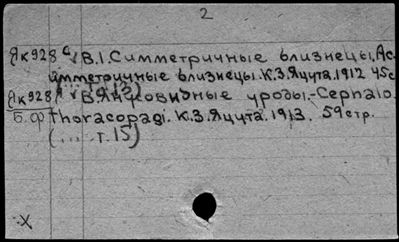 2
Як928 В.1. Симметричные близнецы. Ас
имметричные близнецы. К.З. Яцута. 1912 45с
Як928 В. Янусовидные уроды.-Cephalo
Б.ф thoracopagi. К.З. Яцута. 1913. 59 стр.
(.... т.15)
х